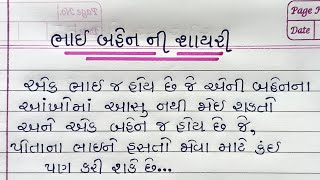 Page No.
Page N
Date
ભાઈ બહેન ની શાયરી
એક ભાઈ જ હોય છે જે એની બહેનના
આંખોમાં આસુ નથી જોઈ શકતો
અને એક બહેન જ હોય છે જે,
પોતાના ભાઇને હસતો જોવા માટે કંઈ
પણ કરી શકે છે...